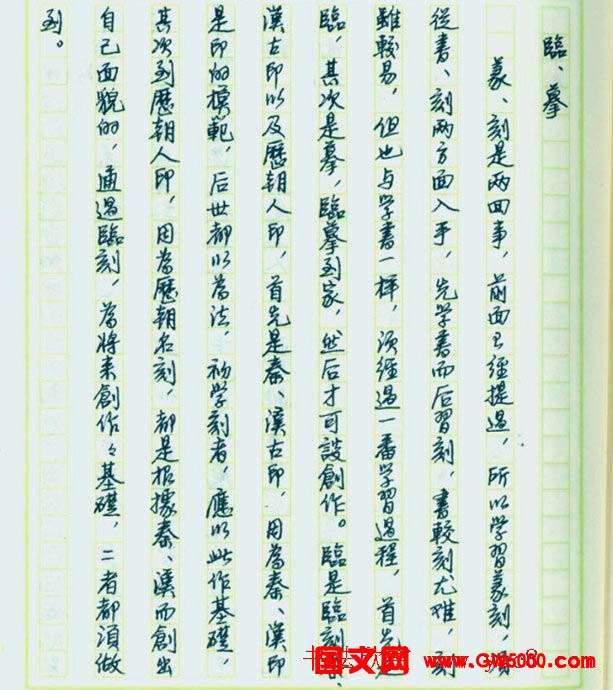 臨、摹
篆、刻是两回事，前面已經提過，所以学習篆刻，須
從書、刻两方面入手，先学書而后習刻，書較刻尤难，刻
雖較易，但也与学書一样，须經過一番学習過程，首先是
臨，其次是摹，臨摹到家，然后才可談創作。臨是臨刻秦、
漢古印以及歷朝人印，首先是秦、漢古印，因為秦、漢印
是印的模範，后世都以為法，初学刻者，應以此作基礎，
其次到歷朝人印，因為歷朝名刻，都是根據秦、漢而創出
自己面貌的，通過臨刻，為将来創作々基礎，二者都須做
到。
国文网
www.GW5000.com